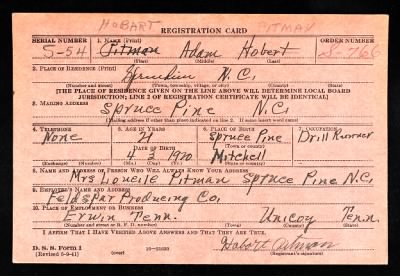 HOBART PITMAN
REGISTRATION CARD
SERIAL NUMBER 1. NAME (Print) ORDER NUMBER
S-54 Pitman Adam Hobert S-766
(First) (Middle) (Last)
2. PLACE OF RESIDENCE (Print)
N.C.
(Number and street) (Town, township, village, or city) (County) (State)
[THE PLACE OF RESIDENCE GIVEN ON THE LINE ABOVE WILL DETERMINE LOCAL BOARD
JURISDICTION; LINE 2 OF REGISTRATION CERTIFICATE WILL BE IDENTICAL]
3. MAILING ADDRESS
Spruce Pine N.C.
[Mailing address if other than place indicated on line 2. If same insert word same]
4. TELEPHONE 5. AGE IN YEARS 6. PLACE OF BIRTH 7. OCCUPATION
None 21 Spruce Pine Drill Runner
DATE OF BIRTH (Town or county)
4 3 1920 Mitchell
(Exchange) (Number) (Mo.) (Day) (Yr.) (State or country)
8. NAME AND ADDRESS OF PERSON WHO WILL ALWAYS KNOW YOUR ADDRESS
Mrs Loucile Pitman Spruce Pine N.C.
9. EMPLOYER'S NAME AND ADDRESS
Feldspar Producing Co.
10. PLACE OF EMPLOYMENT OR BUSINESS
Erwin Tenn. Unicoy Tenn.
(Number and street or R. F. D. number) (Town) (County) (State)
I AFFIRM THAT I HAVE VERIFIED ABOVE ANSWERS AND THAT THEY ARE TRUE.
D. S. S. Form 1
(Revised 5-9-41) (over) Hobart Pitman
(Registrant's signature)